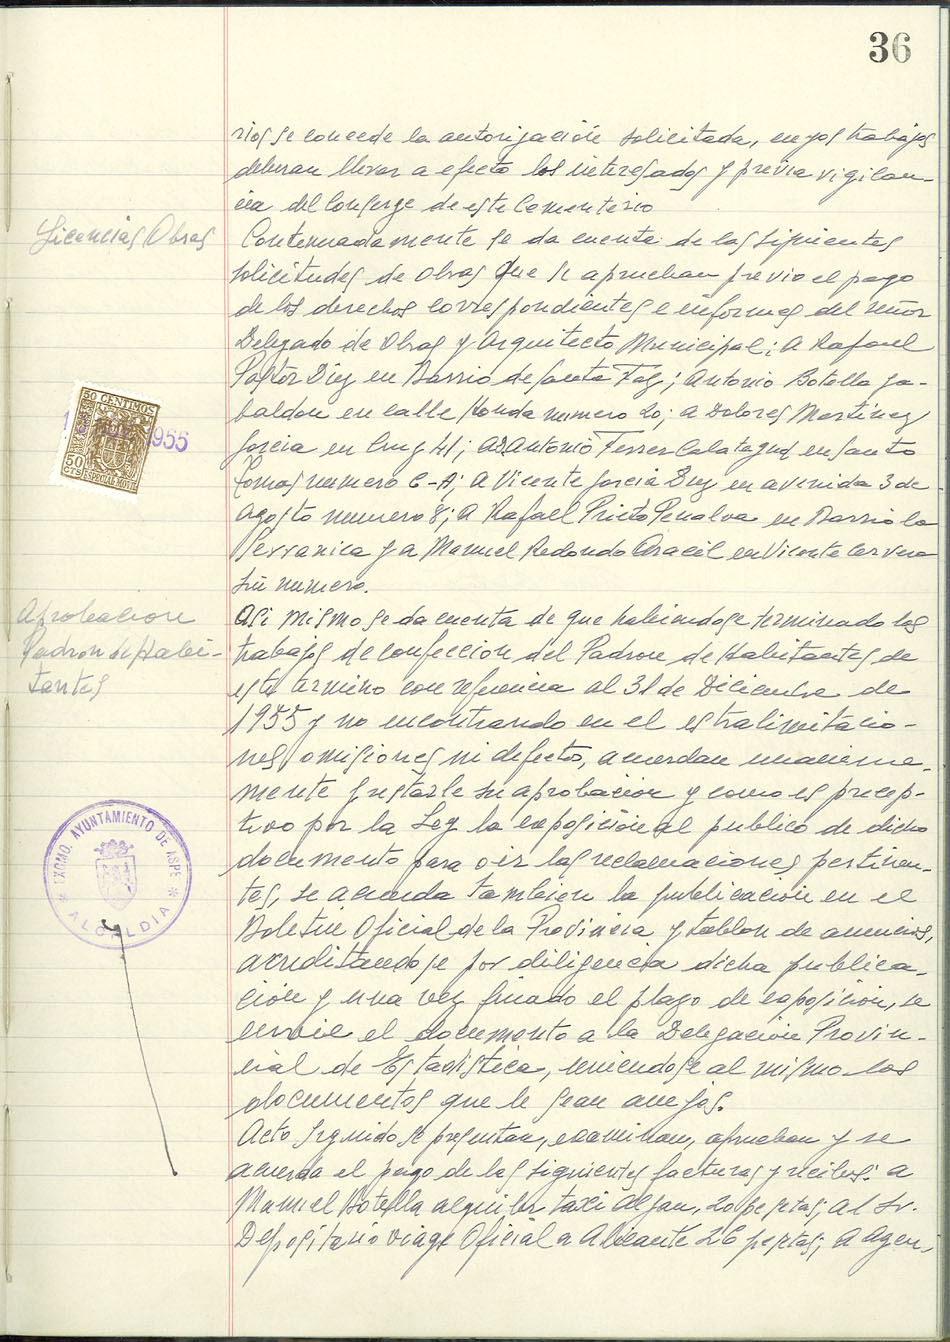 36
rios se concede la autorización solicitada, cuyos trabajos
deberan llevar a efecto los interesados y previa vigilan-
cia del Conserge de este Cementerio
Licencias Obras
Continuadamente se da cuenta de las siguientes
solicitudes de obras que se aprueban previo el pago
de los derechos correspondientes e informes del señor
Delegado de Obras y Arquitecto Municipal; a Rafael
Pastor Diez en Barrio de Santa Faz; Antonio Botella Ga-
baldon en calle Honda numero 20; a Dolores Martinez
Garcia en Cruz 41; a Antonio Ferrer Calatayud, en Santo
Tomas numero C-A; a Vicente Garcia Diez en avenida 3 de
Agosto numero 8; a Rafael Prieto Penalva en Barrio la
Serranica y a Manuel Redondo Aracil en Vicente Cervera
sin numero.
50 CENTIMOS
50
CTS
ESPECIAL MOVIL
1955
Aprobacion
Padron de Habi-
tantes
Asi mismo se da cuenta de que habiendose terminado los
trabajos de confeccion del Padron de Habitantes de
este termino con referencia al 31 de Diciembre de
1955 y no encontrando en el estralimitacio-
nes, omisiones ni defecto, acuerdan unanime-
mente prestarle su aprobacion y como es precep-
tivo por la Ley la exposición al publico de dicho
documento para oir las reclamaciones pertinen-
tes, se acuerda tambien la publicación en el
Boletin Oficial de la Provincia y tablon de anuncios,
acreditandose por diligencia dicha publica-
ción y una vez finado el plazo de exposición, se
envie el documento a la Delegación Provin-
cial de Estadistica, uniendose al mismo los
documentos que le sean anejos.
EXCMO. AYUNTAMIENTO DE ASPE
* ALCALDIA *
Acto seguido se presentan, examinan, aprueban y se
acuerda el pago de las siguientes facturas y recibos: a
Manuel Botella alquiler taxi Aljau, 20 pesetas; al Sr.
Depositario viage Oficial a Alicante 26 pesetas; a Agen-